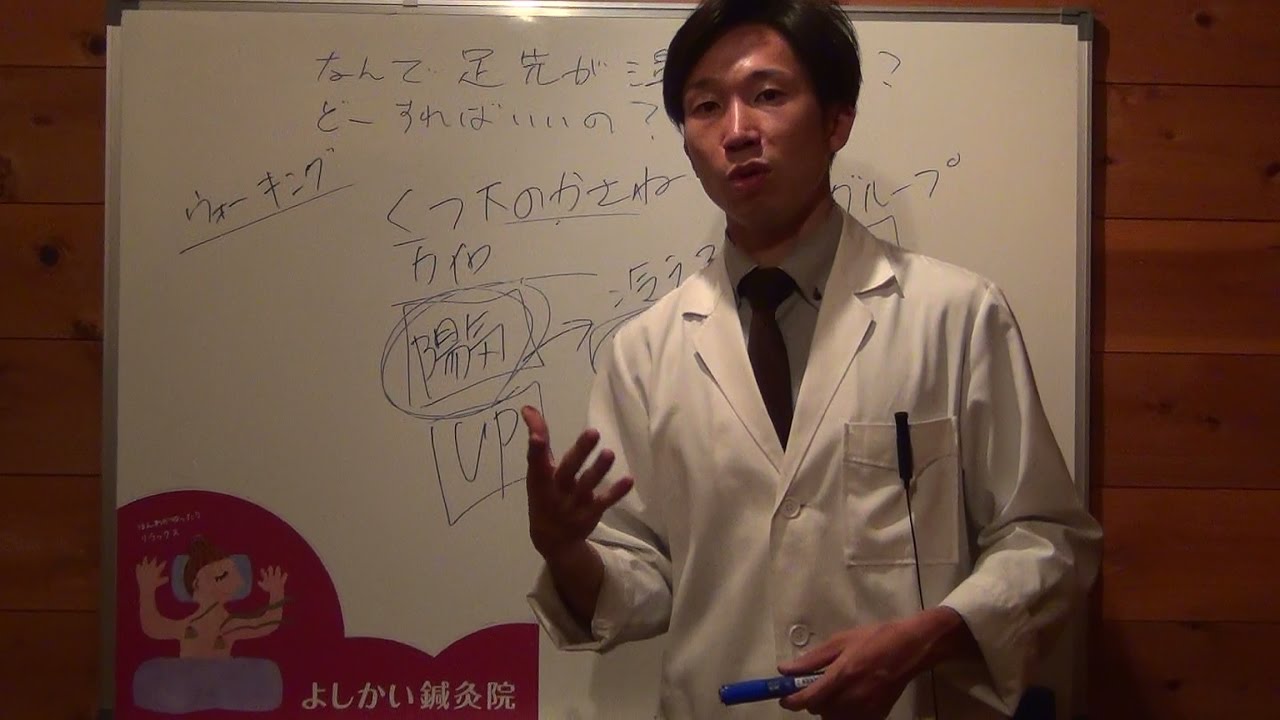 なんで足先が温 ?
どーすればいいの?
ウォーキング
くつ下のかさね
グループ
万和
陽気
UP
ほんわかゆったり
リラックス
よしかい鍼灸院